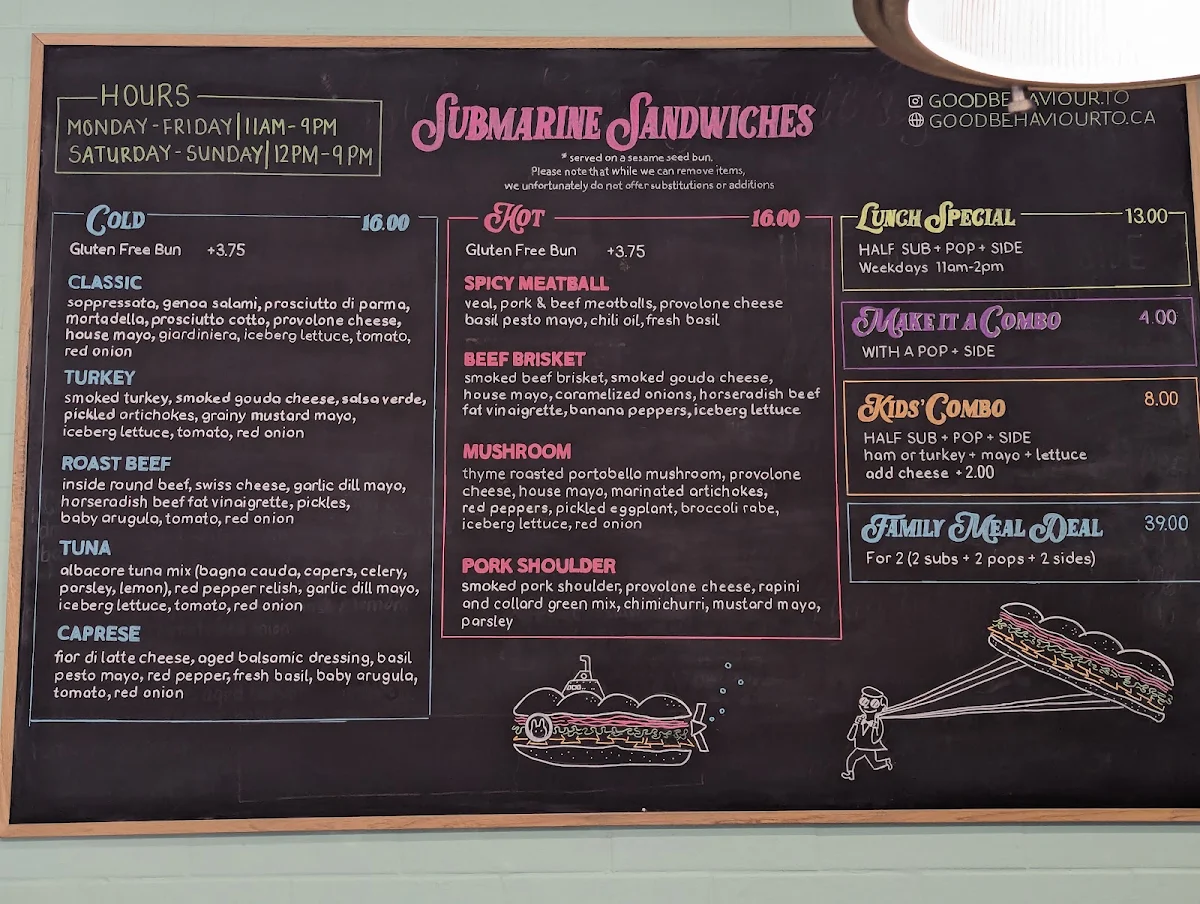 HOURS
MONDAY-FRIDAY|11AM-9PM
SATURDAY-SUNDAY|12PM-9PM
SUBMARINE SANDWICHES
* served on a sesame seed bun.
Please note that while we can remove items,
we unfortunately do not offer substitutions or additions
GOODBEHAVIOUR.TO
GOODBEHAVIOURTO.CA
COLD 16.00
Gluten Free Bun +3.75
CLASSIC
soppressata, genoa salami, prosciutto di parma,
mortadella, prosciutto cotto, provolone cheese,
house mayo, giardiniera, iceberg lettuce, tomato,
red onion
TURKEY
smoked turkey, smoked gouda cheese, salsa verde,
pickled artichokes, grainy mustard mayo,
iceberg lettuce, tomato, red onion
ROAST BEEF
inside round beef, swiss cheese, garlic dill mayo,
horseradish beef fat vinaigrette, pickles,
baby arugula, tomato, red onion
TUNA
albacore tuna mix (bagna cauda, capers, celery,
parsley, lemon), red pepper relish, garlic dill mayo,
iceberg lettuce, tomato, red onion
CAPRESE
fior di latte cheese, aged balsamic dressing, basil
pesto mayo, red pepper, fresh basil, baby arugula,
tomato, red onion
HOT 16.00
Gluten Free Bun +3.75
SPICY MEATBALL
veal, pork & beef meatballs, provolone cheese
basil pesto mayo, chili oil, fresh basil
BEEF BRISKET
smoked beef brisket, smoked gouda cheese,
house mayo, caramelized onions, horseradish beef
fat vinaigrette, banana peppers, iceberg lettuce
MUSHROOM
thyme roasted portobello mushroom, provolone
cheese, house mayo, marinated artichokes,
red peppers, pickled eggplant, broccoli rabe,
iceberg lettuce, red onion
PORK SHOULDER
smoked pork shoulder, provolone cheese, rapini
and collard green mix, chimichurri, mustard mayo,
parsley
LUNCH SPECIAL 13.00
HALF SUB + POP + SIDE
Weekdays 11am-2pm
MAKE IT A COMBO 4.00
WITH A POP + SIDE
KIDS' COMBO 8.00
HALF SUB + POP + SIDE
ham or turkey + mayo + lettuce
add cheese +2.00
FAMILY MEAL DEAL 39.00
For 2 (2 subs + 2 pops + 2 sides)